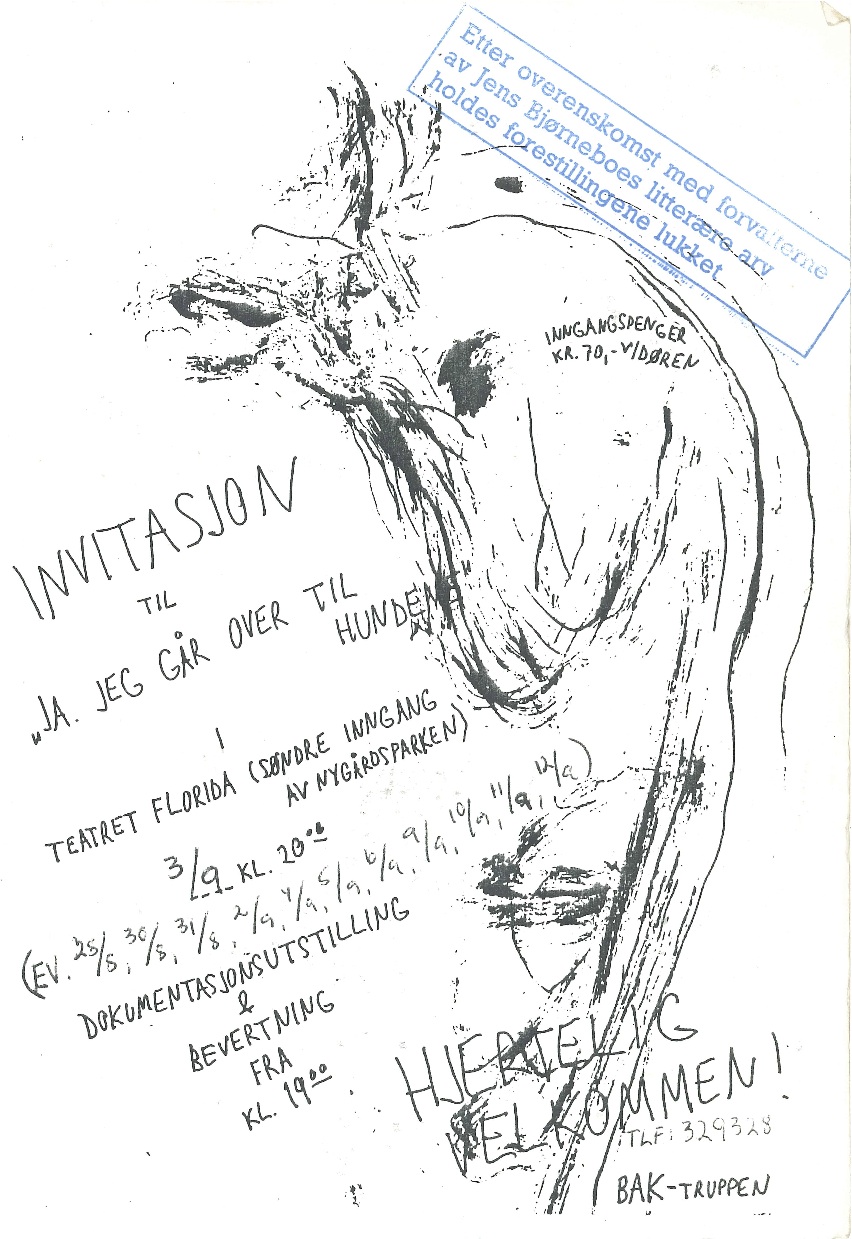 Etter overenskomst med forvalterne
av Jens Bjørneboes litterære arv
holdes forestillingene lukket
INNGANGSPENGER
KR. 70,- V/DØREN
INVITASJON
TIL
„JA. JEG GÅR OVER TIL
HUNDENE"
I
TEATRET FLORIDA (SØNDRE INNGANG
AV NYGÅRDSPARKEN)
3/9 KL. 20⁰⁰
(EV. 25/8, 30/8, 31/8, 2/9, 4/9, 5/9, 6/9, 9/9, 10/9, 11/9, 12/9)
DOKUMENTASJONSUTSTILLING
&
BEVERTNING
FRA
KL. 19⁰⁰
HJERTELIG
VELKOMMEN!
TLF: 329328
BAK-TRUPPEN